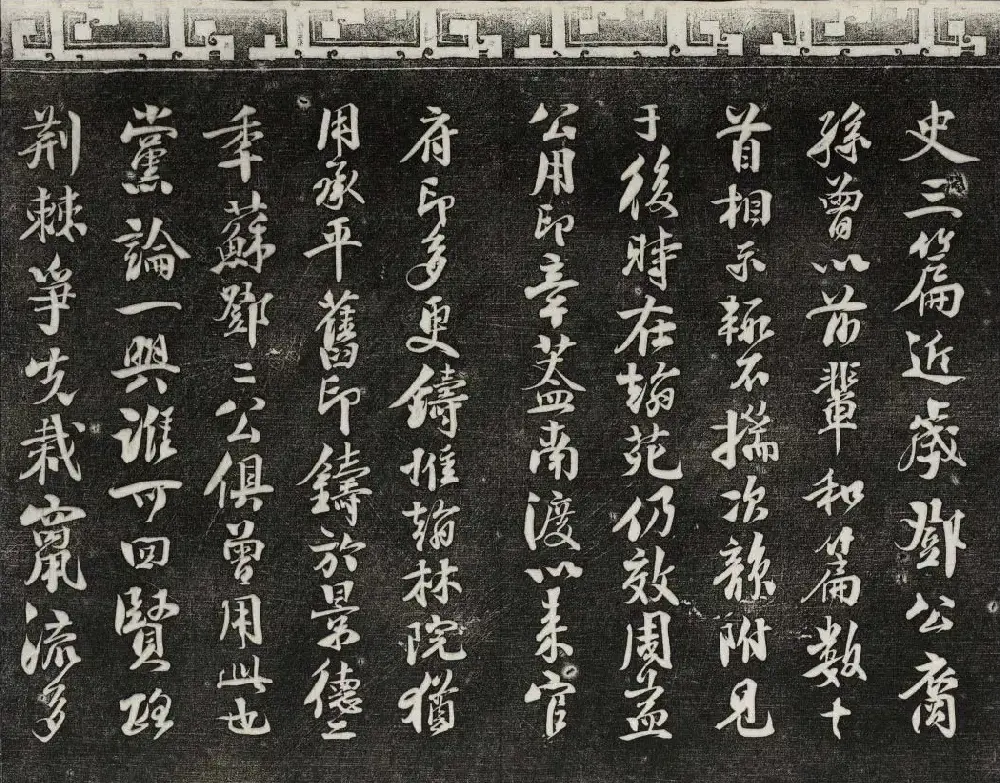 史三篇近歲鄧公裔
孫曽以前輩和篇數十
首相示輙不揣次韻附見
于後時在翰苑仍效周益
公用印章蓋南渡以来官
府印多更鑄惟翰林院猶
用承平舊印鑄於景德二
年蘇鄧二公俱曾用此也
黨論一興誰可回賢路
荆棘争先栽竄流多